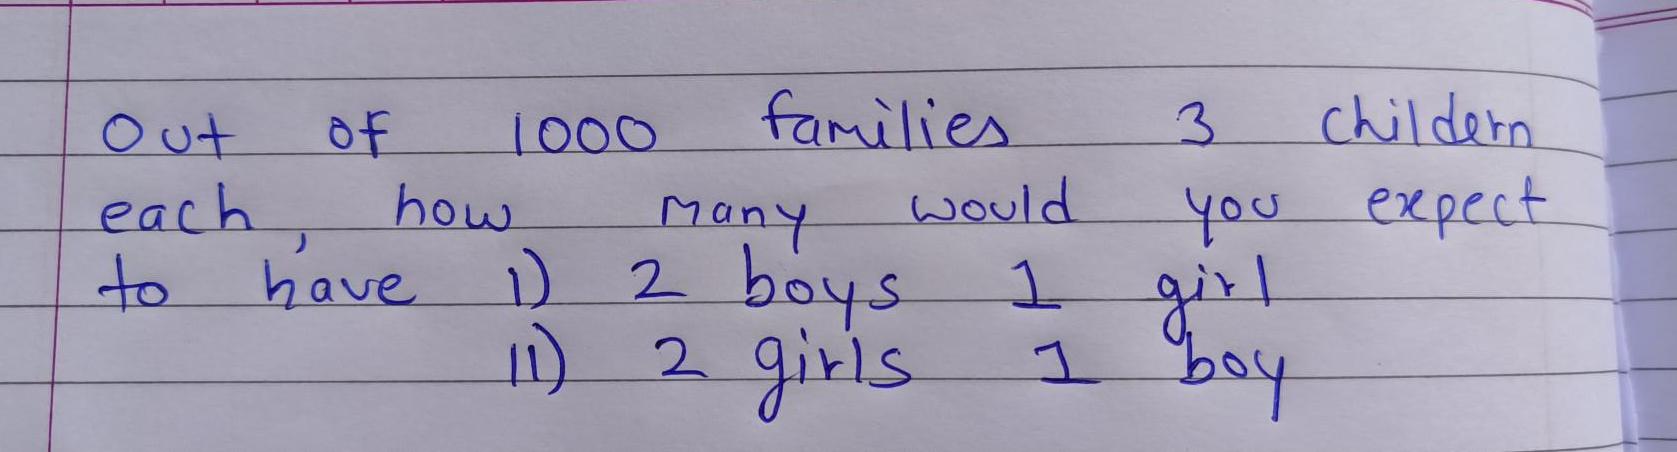 Out of 1000 families 3 childern
each, how many would you expect
to have I) 2 boys 1 girl
II) 2 girls 1 boy